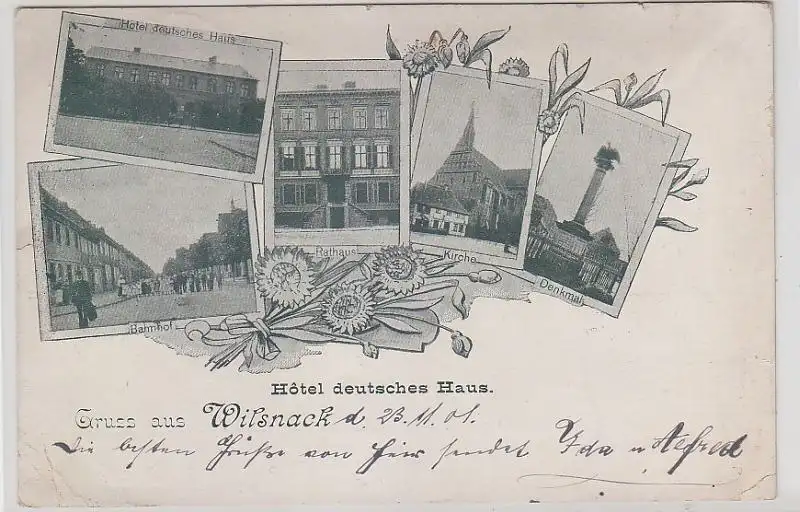 Hotel deutsches Haus
Rathaus
Kirche
Denkmal
Bahnhof
Hôtel deutsches Haus.
Gruss aus Wilsnack d. 23.11.01.
Die besten Grüße von hier sendet Ida u Alfred